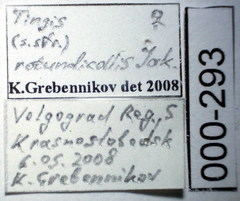 Tingis ♀
(s.str.)
rotundicollis Jak.
K.Grebennikov det 2008
Volgograd Reg., S
Krasnoslobodsk
6.05.2008
K. Grebennikov
000-293